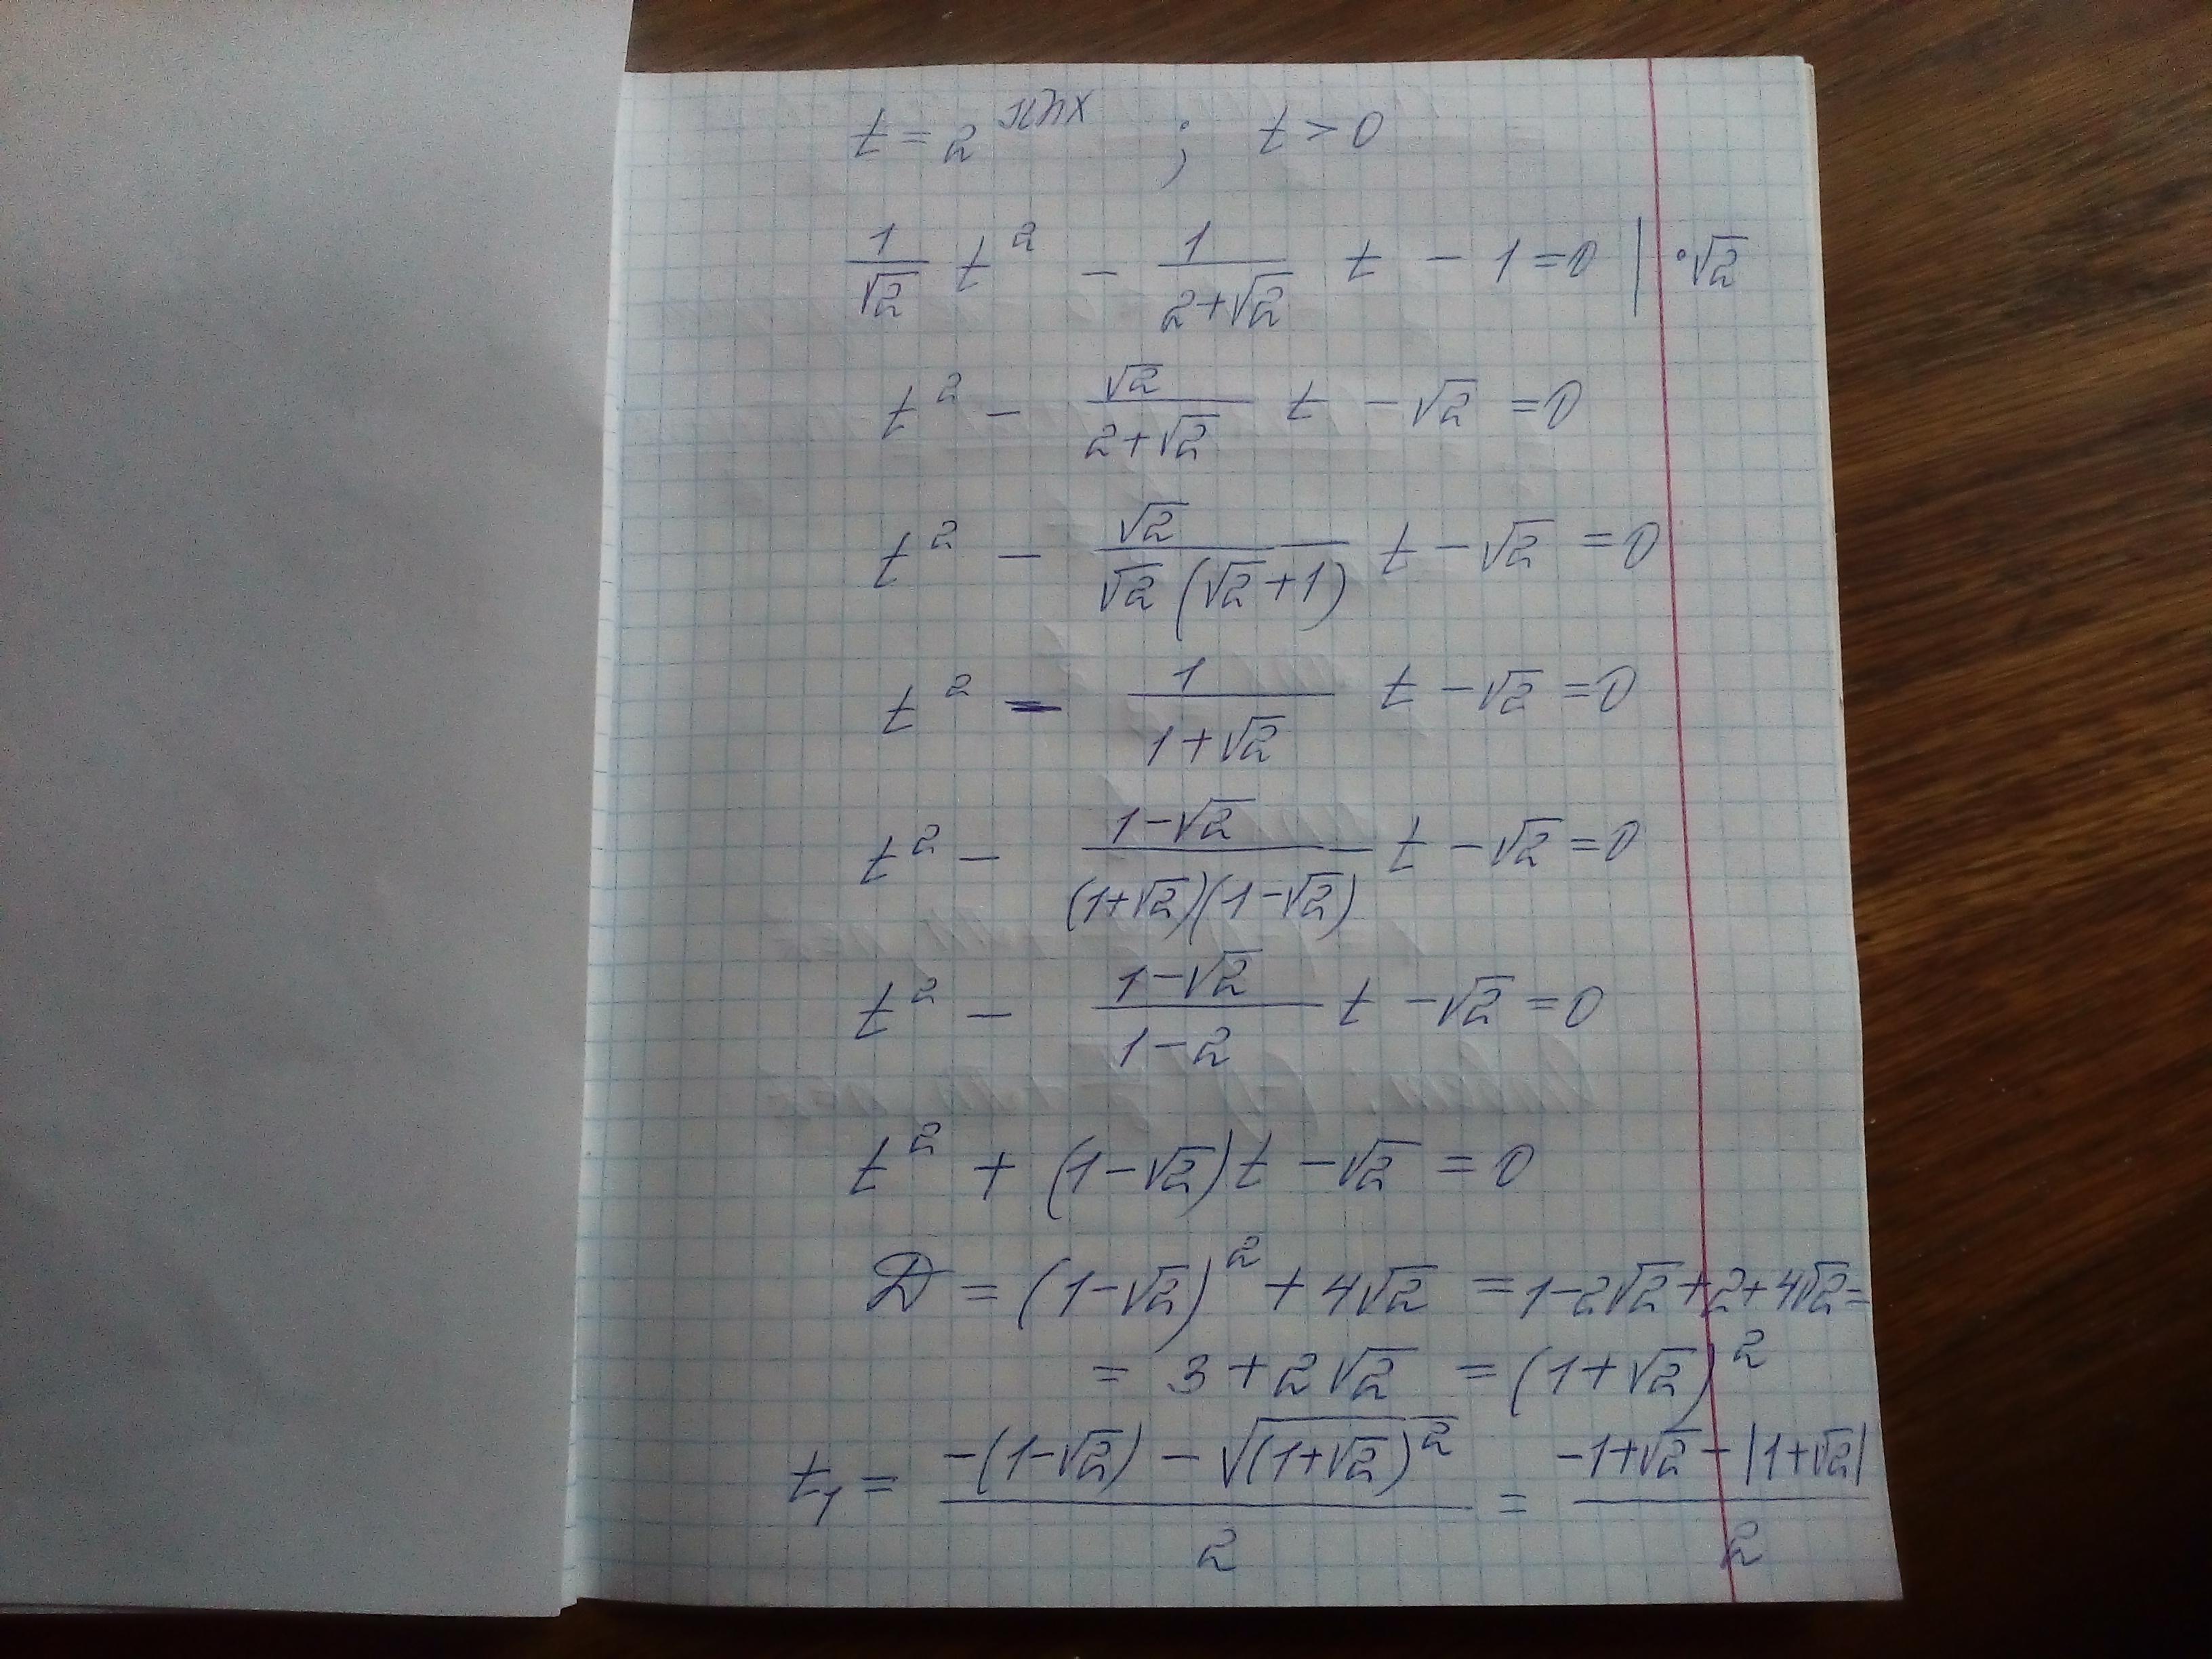 t = 2^sinx ; t > 0
1/√2 t² - 1/(2+√2) t - 1 = 0 | ·√2
t² - √2/(2+√2) t - √2 = 0
t² - √2/(√2(√2+1)) t - √2 = 0
t² - 1/(1+√2) t - √2 = 0
t² - (1-√2)/((1+√2)(1-√2)) t - √2 = 0
t² - (1-√2)/(1-2) t - √2 = 0
t² + (1-√2)t - √2 = 0
D = (1-√2)² + 4√2 = 1-2√2+2+4√2 =
= 3 + 2√2 = (1+√2)²
t₁ = (-(1-√2) - √((1+√2)²))/2 = (-1+√2 - |1+√2|)/2